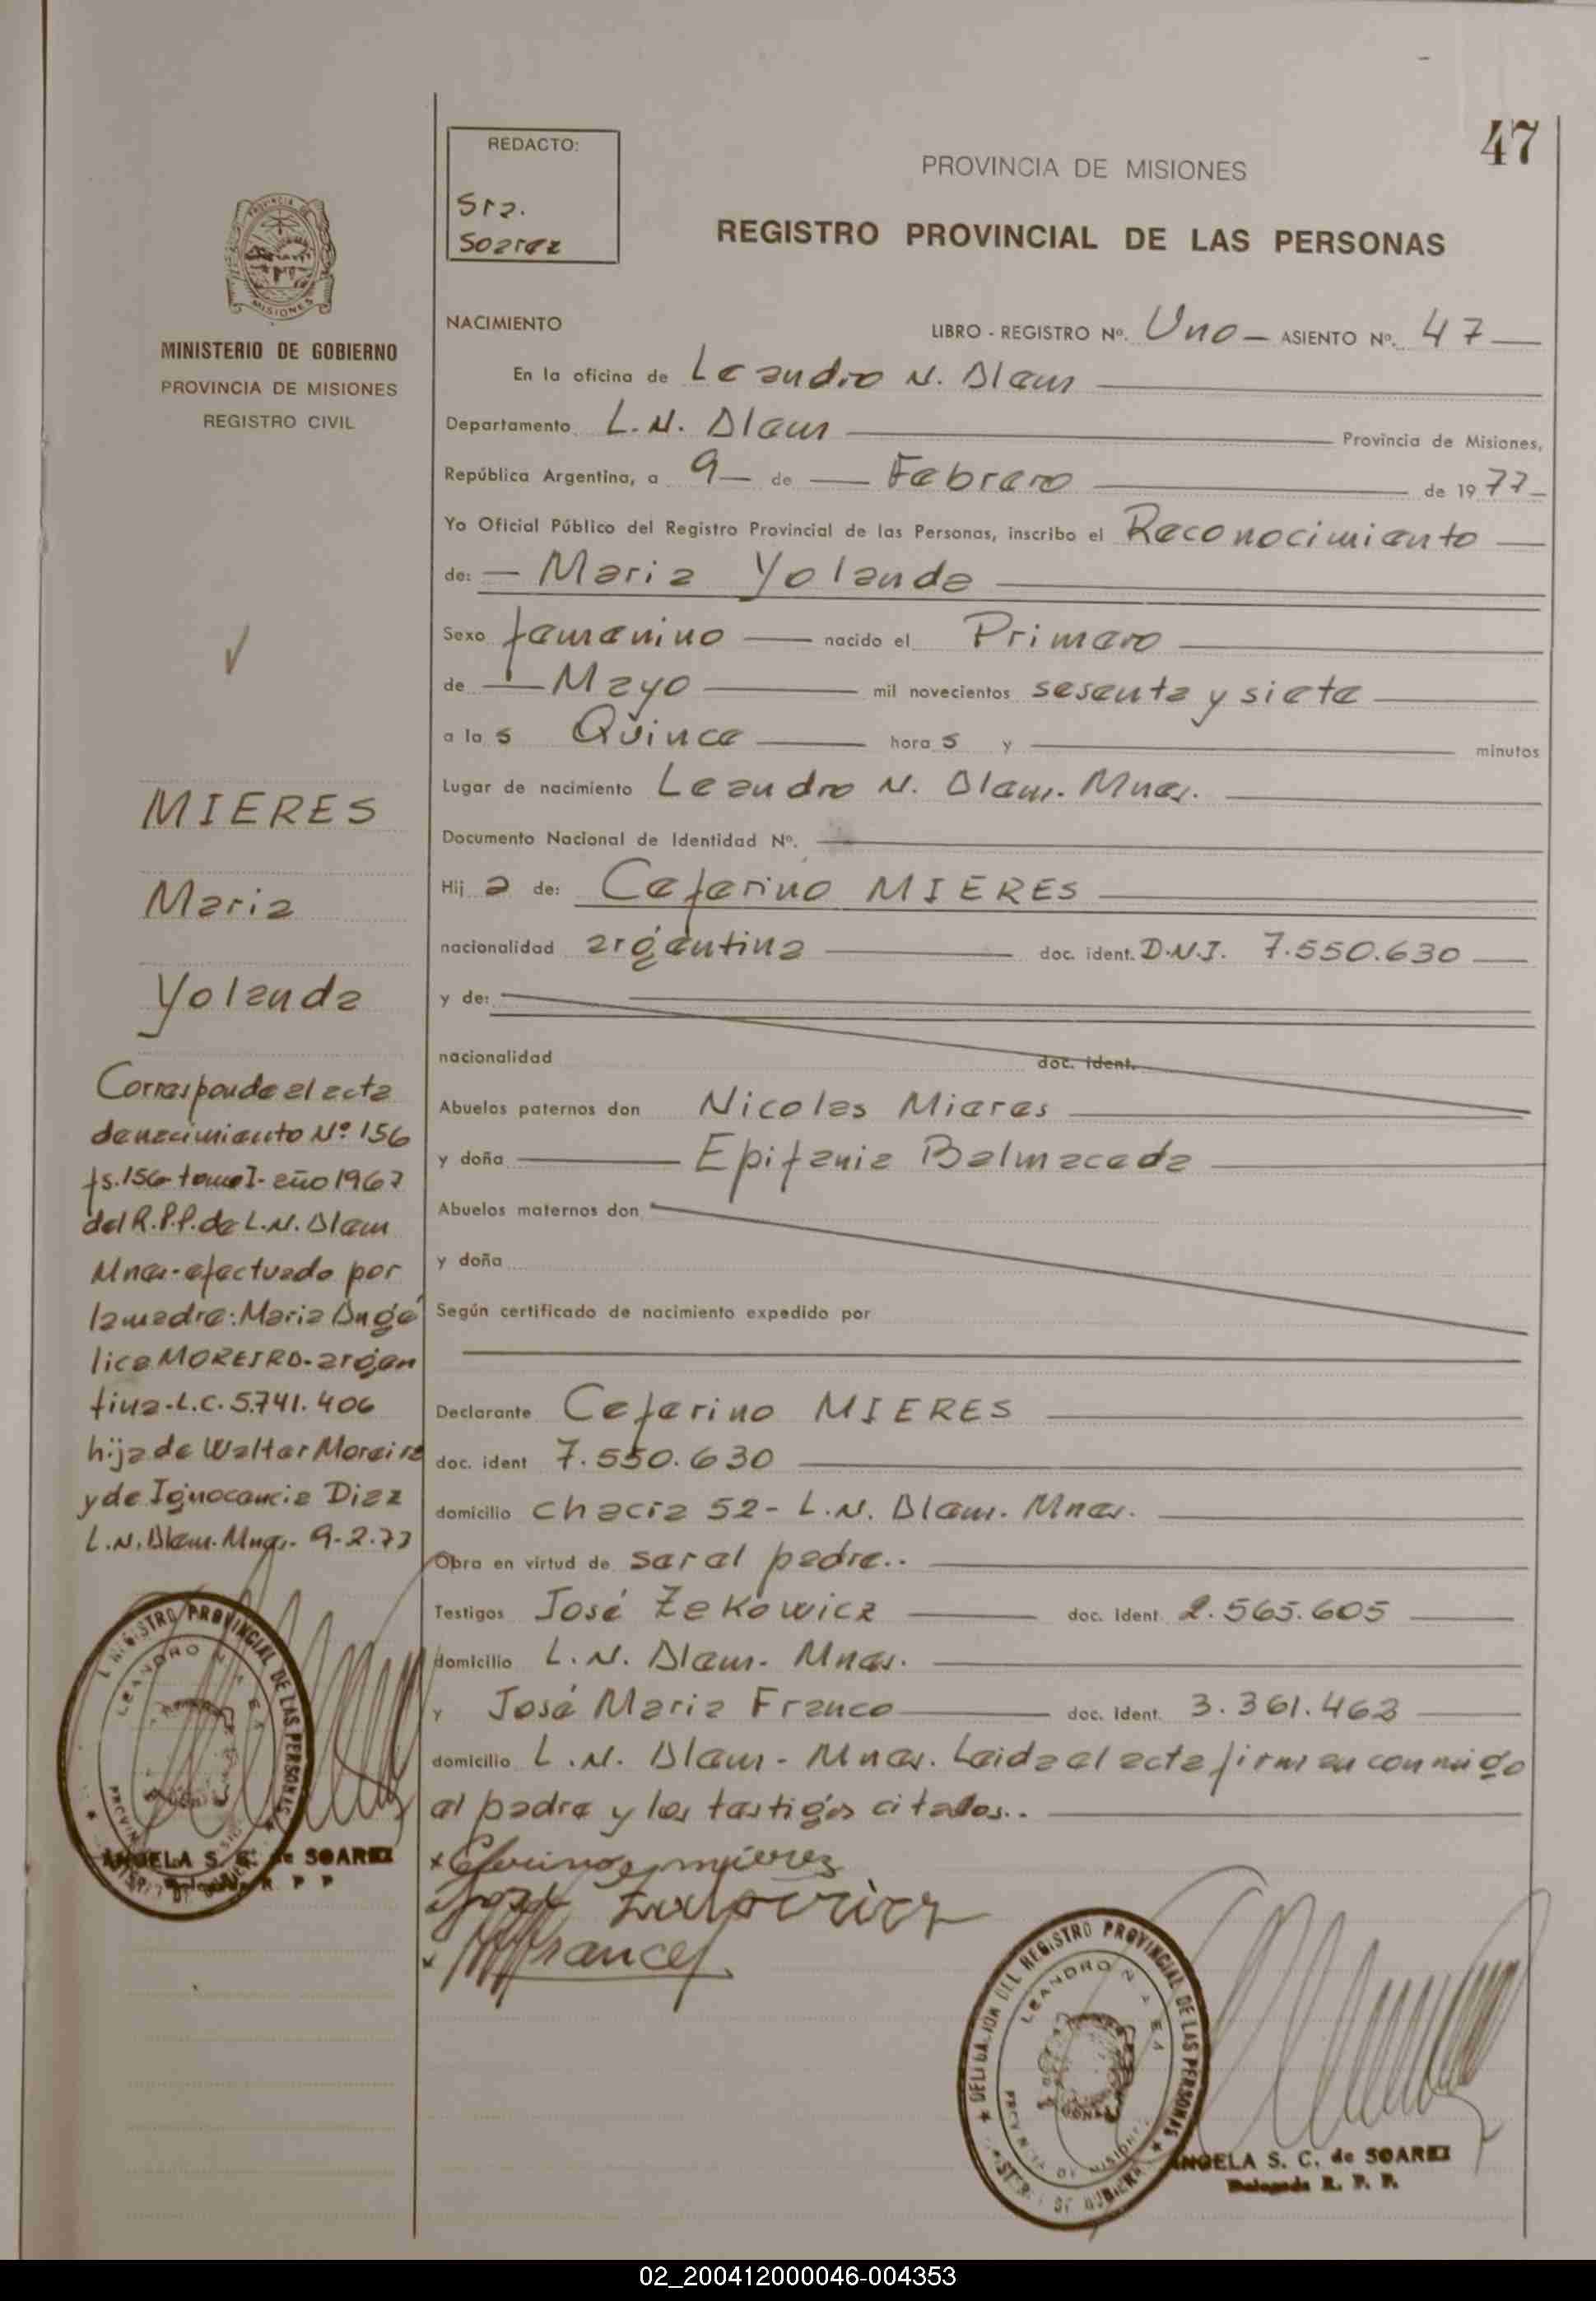 47
REDACTO:
Sra.
Soarez
PROVINCIA DE MISIONES
REGISTRO PROVINCIAL DE LAS PERSONAS
MINISTERIO DE GOBIERNO
PROVINCIA DE MISIONES
REGISTRO CIVIL
MIERES
Maria
Yolanda
Corresponde al acta
de nacimiento Nº 156
fs.156-tomo I-año 1967
del R.P.P. de L.N. Alem
Mnes-efectuado por
la madre: Maria Angé
lica MOREIRA-argen
tina-L.C. 5.741.406
hija de Walter Moreira
y de Ignocencia Diaz
L.N. Alem-Mnes- 9-2-77
NACIMIENTO
LIBRO - REGISTRO Nº. Uno — ASIENTO Nº. 47 —
En la oficina de Leandro N. Alem
Departamento L.N. Alem Provincia de Misiones,
República Argentina, a 9 — de — Febrero de 1977 —
Yo Oficial Público del Registro Provincial de las Personas, inscribo el Reconocimiento
de: — Maria Yolanda
Sexo femenino — nacido el Primero
de — Mayo — mil novecientos sesenta y siete
a las Quince — horas y — minutos
Lugar de nacimiento Leandro N. Alem. Mnes.
Documento Nacional de Identidad Nº.
Hija de: Ceferino MIERES
nacionalidad argentina — doc. ident. D.N.I. 7.550.630 —
y de:
nacionalidad doc. ident.
Abuelos paternos don Nicolas Mieres
y doña — Epifania Balmaceda
Abuelos maternos don
y doña
Según certificado de nacimiento expedido por
Declarante Ceferino MIERES
doc. ident 7.550.630
domicilio chacra 52- L.N. Alem. Mnes.
Obra en virtud de ser el padre..
Testigos José Zekowicz — doc. Ident. 2.565.605 —
domicilio L.N. Alem- Mnes.
y José Maria Franco — doc. Ident. 3.361.463 —
domicilio L.N. Alem- Mnes. Leida el acta firman conmigo
el padre y los testigos citados..
REGISTRO PROVINCIAL DE LAS PERSONAS
LEANDRO N. ALEM
ANGELA S. C. de SOAREZ
Delegada R. P. P.
DELEGACION DEL REGISTRO PROVINCIAL DE LAS PERSONAS
LEANDRO N. ALEM
PROVINCIA DE MISIONES
ANGELA S. C. de SOAREZ
Delegada R. P. P.
02_200412000046-004353